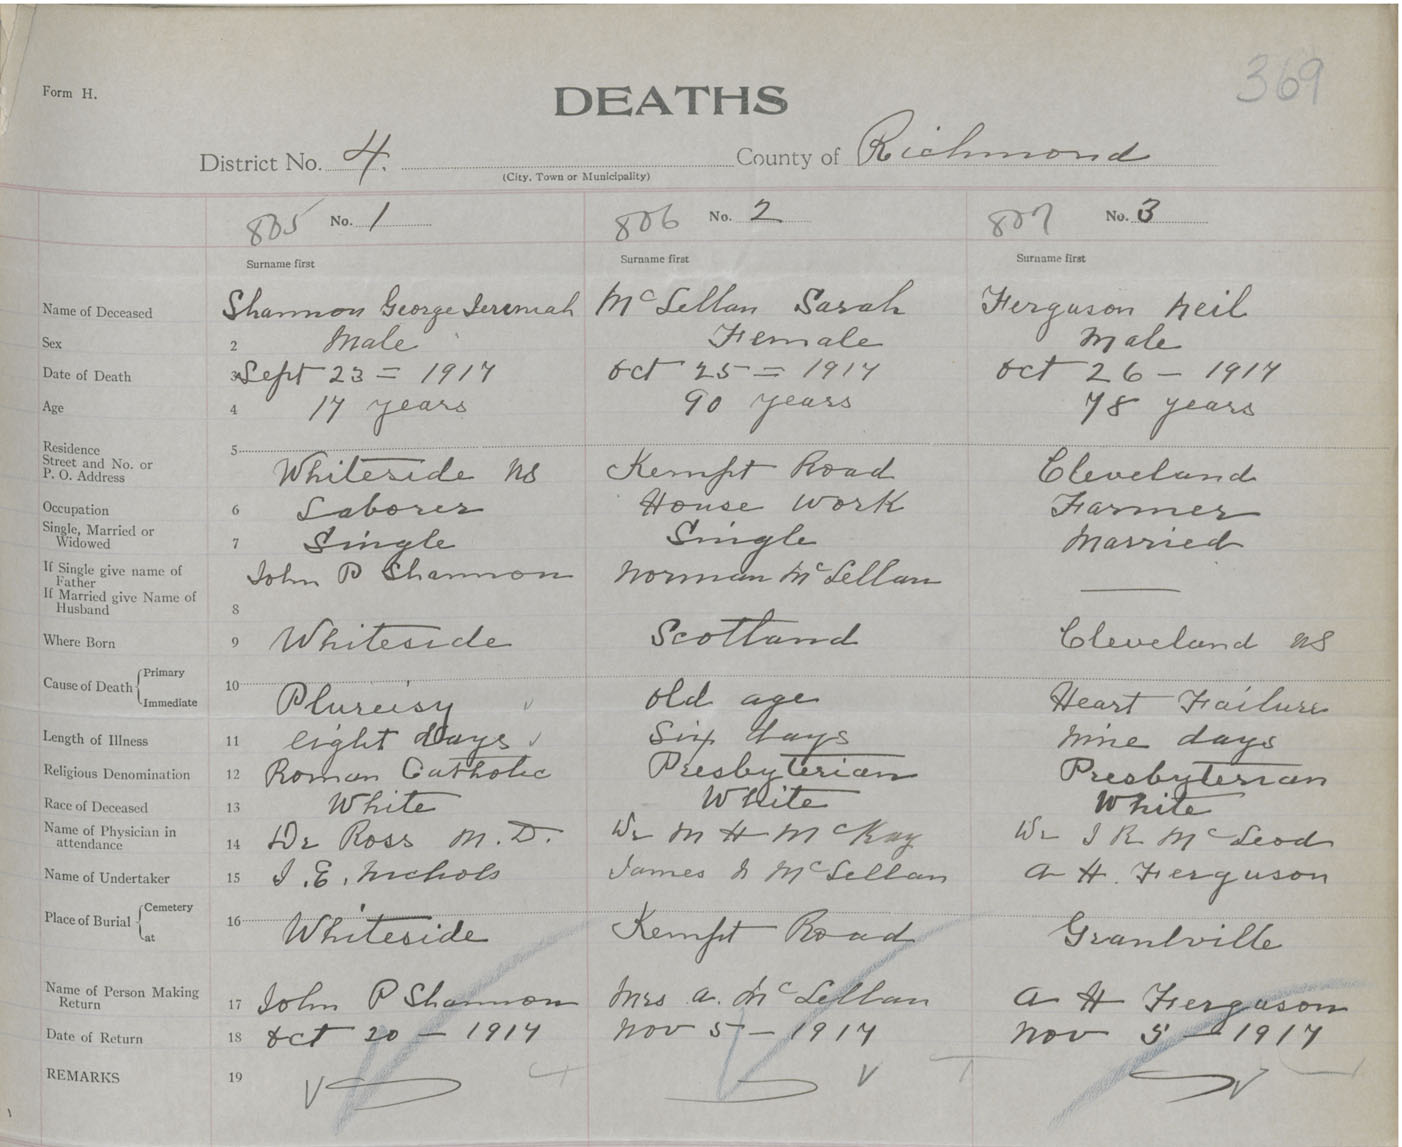 369
Form H.
DEATHS
District No. 4. County of Richmond
(City, Town or Municipality)
805 No. 1 806 No. 2 807 No. 3
Surname first Surname first Surname first
Name of Deceased Shannon George Jeremiah McLellan Sarah Ferguson Neil
Sex 2 Male Female Male
Date of Death 3 Sept 23 = 1917 Oct 25 = 1917 Oct 26 - 1917
Age 4 17 years 90 years 78 years
Residence
Street and No. or
P. O. Address 5 Whiteside NS Kempt Road Cleveland
Occupation 6 Laborer House Work Farmer
Single, Married or
Widowed 7 Single Single Married
If Single give name of
Father John P Shannon Norman McLellan
If Married give Name of
Husband 8
Where Born 9 Whiteside Scotland Cleveland NS
Cause of Death { Primary
Immediate 10 Plureisy old age Heart Failure
Length of Illness 11 eight days Six days Nine days
Religious Denomination 12 Roman Catholic Presbyterian Presbyterian
Race of Deceased 13 White White White
Name of Physician in
attendance 14 Dr Ross M.D. Dr M H McKay Dr J R McLeod
Name of Undertaker 15 J.E. Nichols James McLellan A H. Ferguson
Place of Burial { Cemetery
at 16 Whiteside Kempt Road Grantville
Name of Person Making
Return 17 John P Shannon Mrs A. McLellan A H Ferguson
Date of Return 18 Oct 20 - 1917 Nov 5 - 1917 Nov 5 - 1917
REMARKS 19